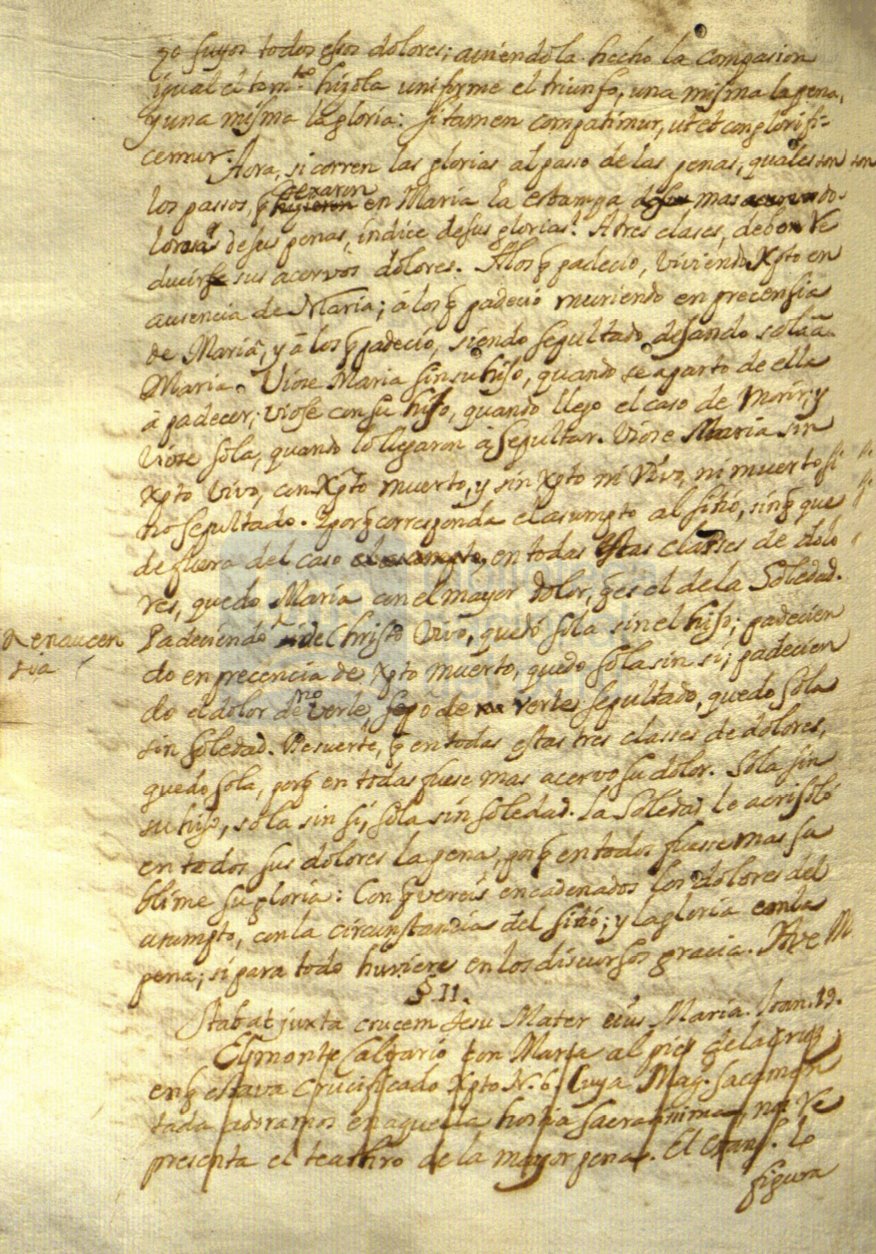 yo suyos todos esos dolores; auiendola hecho la compasion
igual el tam.to hizola uniforme el triunfo, una misma la pena,
y una misma la gloria: si tamen compatimur, ut et conglorifi=
cemur. Aora, si corren las glorias al passo de las penas, quales son
los passos, q dexaron en Maria la estampa mas do-
lorosa de sus penas, indice de sus glorias? A tres clases, deben re
ducirse sus acervos dolores. A los q padecio, viviendo Xpto en
ausencia de Maria; á los q padecio muriendo en precensia
de Maria, y á los q padeció, siendo sepultado dejando sola á
Maria. Viose Maria sin su hijo, quando se aparto de ella
á padecer; viose con su hijo, quando llego el caso de morir; y
viose sola, quando lo llegaron a sepultar. Viose Maria sin
Xpto vivo, con Xpto muerto, y sin Xpto ni vivo, ni muerto si
no sepultado. Y porq corresponda el asumpto al sitio, sin q que
de fuera del caso en todas estas classes de dolo
res, quedo Maria con el mayor dolor, q es el de la Soledad.
Padeciendo de Christo vivo, quedó sola sin el hijo; padecien
do en precencia de Xpto muerto, quedo sola sin si; padecien
do el dolor de no verle, de verle sepultado, quedo sola
sin soledad. De suerte, q en todas estas tres classes de dolores,
quedo sola, porq en todas fuese mas acervo su dolor. Sola sin
su hijo, sola sin si, sola sin soledad. La Soledad le acrisoló
en todos sus dolores la pena, porq en todos fuesse mas su
blime su gloria: Con q vereis encadenados los dolores del
asumpto, con la circunstancia del sitio; y la gloria con la
pena; si para todo huviere en los discursos gracia. Ave M
§. II.
Stabat juxta crucem Jesu Mater eius Maria. Joan. 19.
El monte Calvario con Maria al pie de la cruz
en q estava Crucificado Xpto N. Cuya Mag. sacamen
tada adoramos en aquella hostia sacratissima, nos re
presenta el teathro de la mayor pena. El evang. le
figura